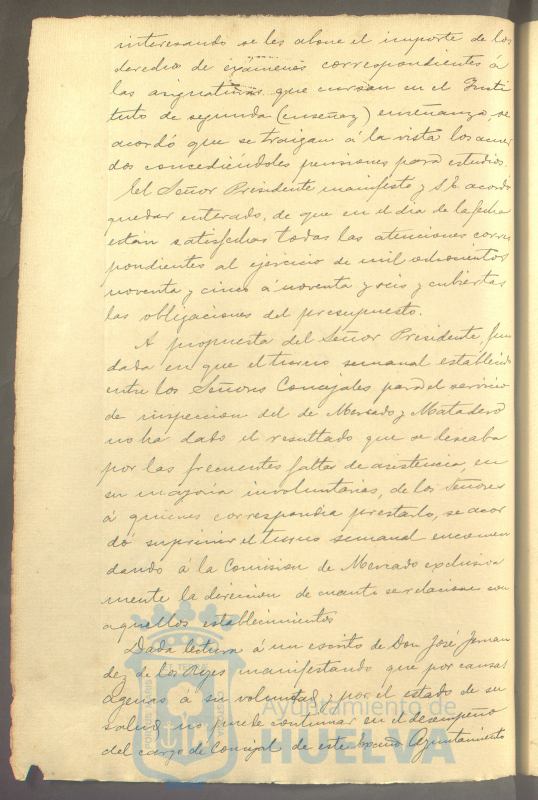 interesando se les abone el importe de los
derechos de exámenes correspondientes á
las asignaturas que cursan en el Insti
tuto de segunda (enseñaz) enseñanza, se
acordó que se traigan á la vista los acuer
dos concediéndoles pensiones para estudios.
El Señor Presidente manifestó y S. E. acordó
quedar enterado, de que en el dia de la fecha
están satisfechas todas las atenciones corres
pondientes al ejercicio de mil ochocientos
noventa y cinco á noventa y seis y cubiertas
las obligaciones del presupuesto.
A propuesta del Señor Presidente, fun
dada en que el turno semanal establecido
entre los Señores Concejales para el servicio
de inspeccion del de Mercado y Matadero
no ha dado el resultado que se deseaba
por las frecuentes faltas de asistencia, en
su mayoria involuntarias, de los Señores
á quienes correspondia prestarlo, se acor
dó suprimir el turno semanal encomen
dando á la Comision de Mercado exclusiva
mente la direccion de cuanto se relacione con
aquellos establecimientos
Dada lectura á un escrito de Don José Fernan
dez de los Reyes manifestando que por causas
agenas á su voluntad y por el estado de su
salud no puede continuar en el desempeño
del cargo de Concejal de este Ayuntamiento
Ayuntamiento de
HUELVA